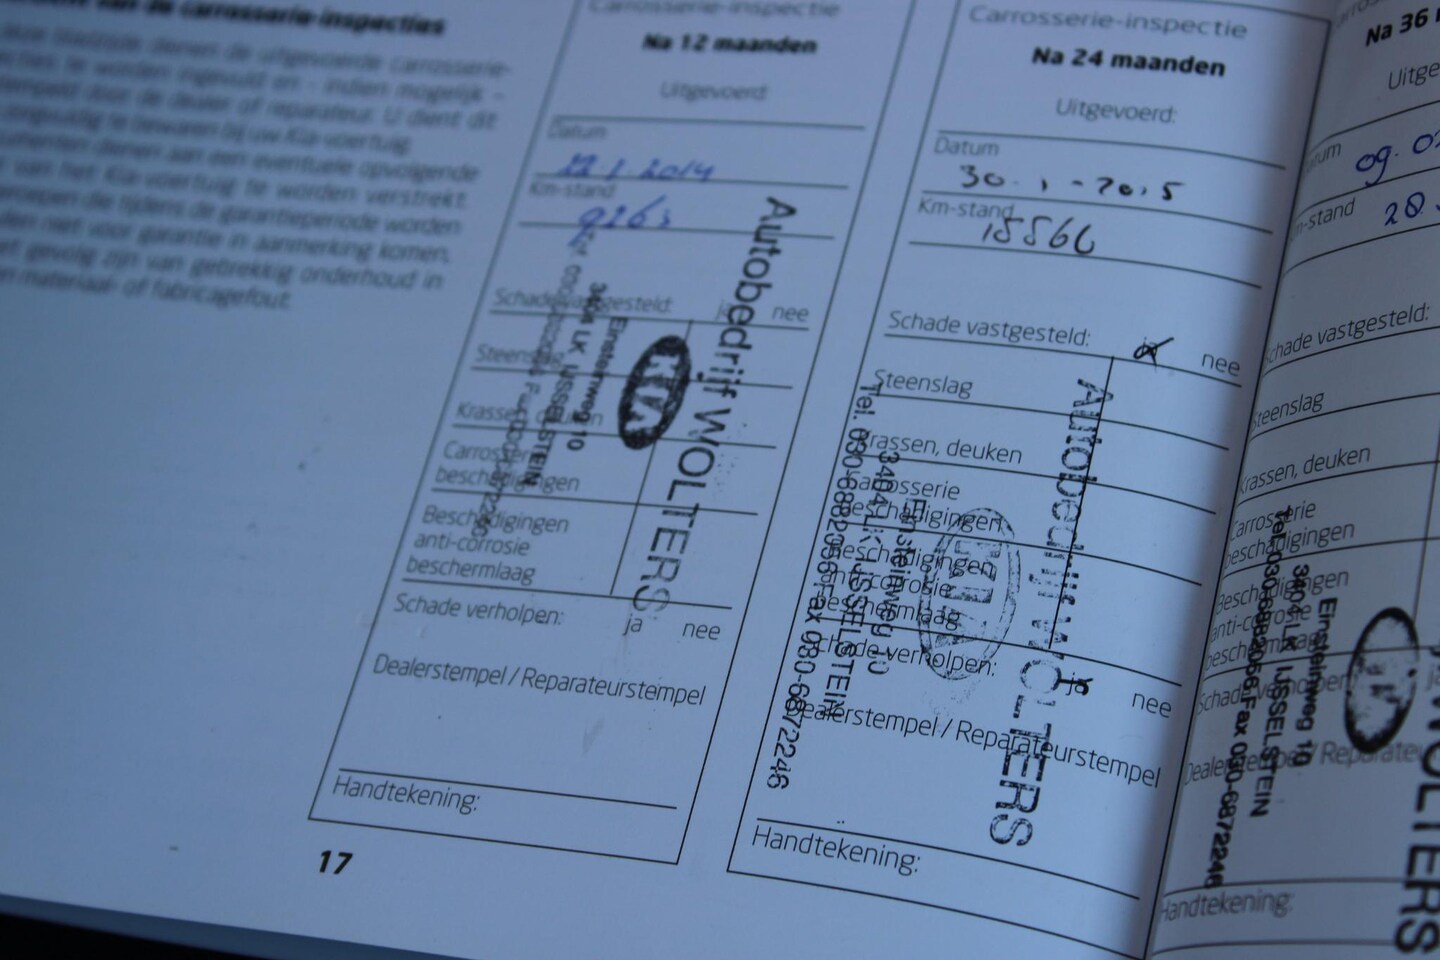 van de carrosserie-inspecties
dienen de uitgevoerde carrosserie-
te worden ingevuld en - indien mogelijk -
door de dealer of reparateur. U dient dit
zorgvuldig te bewaren bij uw Kia-voertuig.
dienen aan een eventuele opvolgende
van het Kia-voertuig te worden verstrekt.
die tijdens de garantieperiode worden
niet voor garantie in aanmerking komen,
gevolg zijn van gebrekkig onderhoud in
materiaal- of fabricagefout.
17
Carrosserie-inspectie
Na 12 maanden
Uitgevoerd
Datum
2014
Km-stand
Schade vastgesteld: ja nee
Steenslag
Krassen, deuken
Carrosserie
beschadigingen
Beschadigingen
anti-corrosie
beschermlaag
Schade verholpen: ja nee
Dealerstempel / Reparateurstempel
Handtekening:
Autobedrijf WOLTERS
KIA
Einsteinweg 10
3404 LK IJSSELSTEIN
Carrosserie-inspectie
Na 24 maanden
Uitgevoerd:
Datum
Km-stand
Schade vastgesteld: ja nee
Steenslag
Krassen, deuken
Carrosserie
beschadigingen
Beschadigingen
anti-corrosie
beschermlaag
Schade verholpen: ja nee
Dealerstempel / Reparateurstempel
Handtekening:
Autobedrijf WOLTERS
KIA
Einsteinweg 10
3404 LK IJSSELSTEIN
Tel. 030-6882056 Fax 030-6872246
Na 36
Uitge
tum
09.02
m-stand
20.
Schade vastgesteld:
Steenslag
Krassen, deuken
Carrosserie
beschadigingen
Beschadigingen
anti-corrosie
beschermlaag
Schade verholpen:
Handtekening:
OLTERS
Einsteinweg 10
3404 LK IJSSELSTEIN
Tel. 030-6882056 Fax 030-6872246